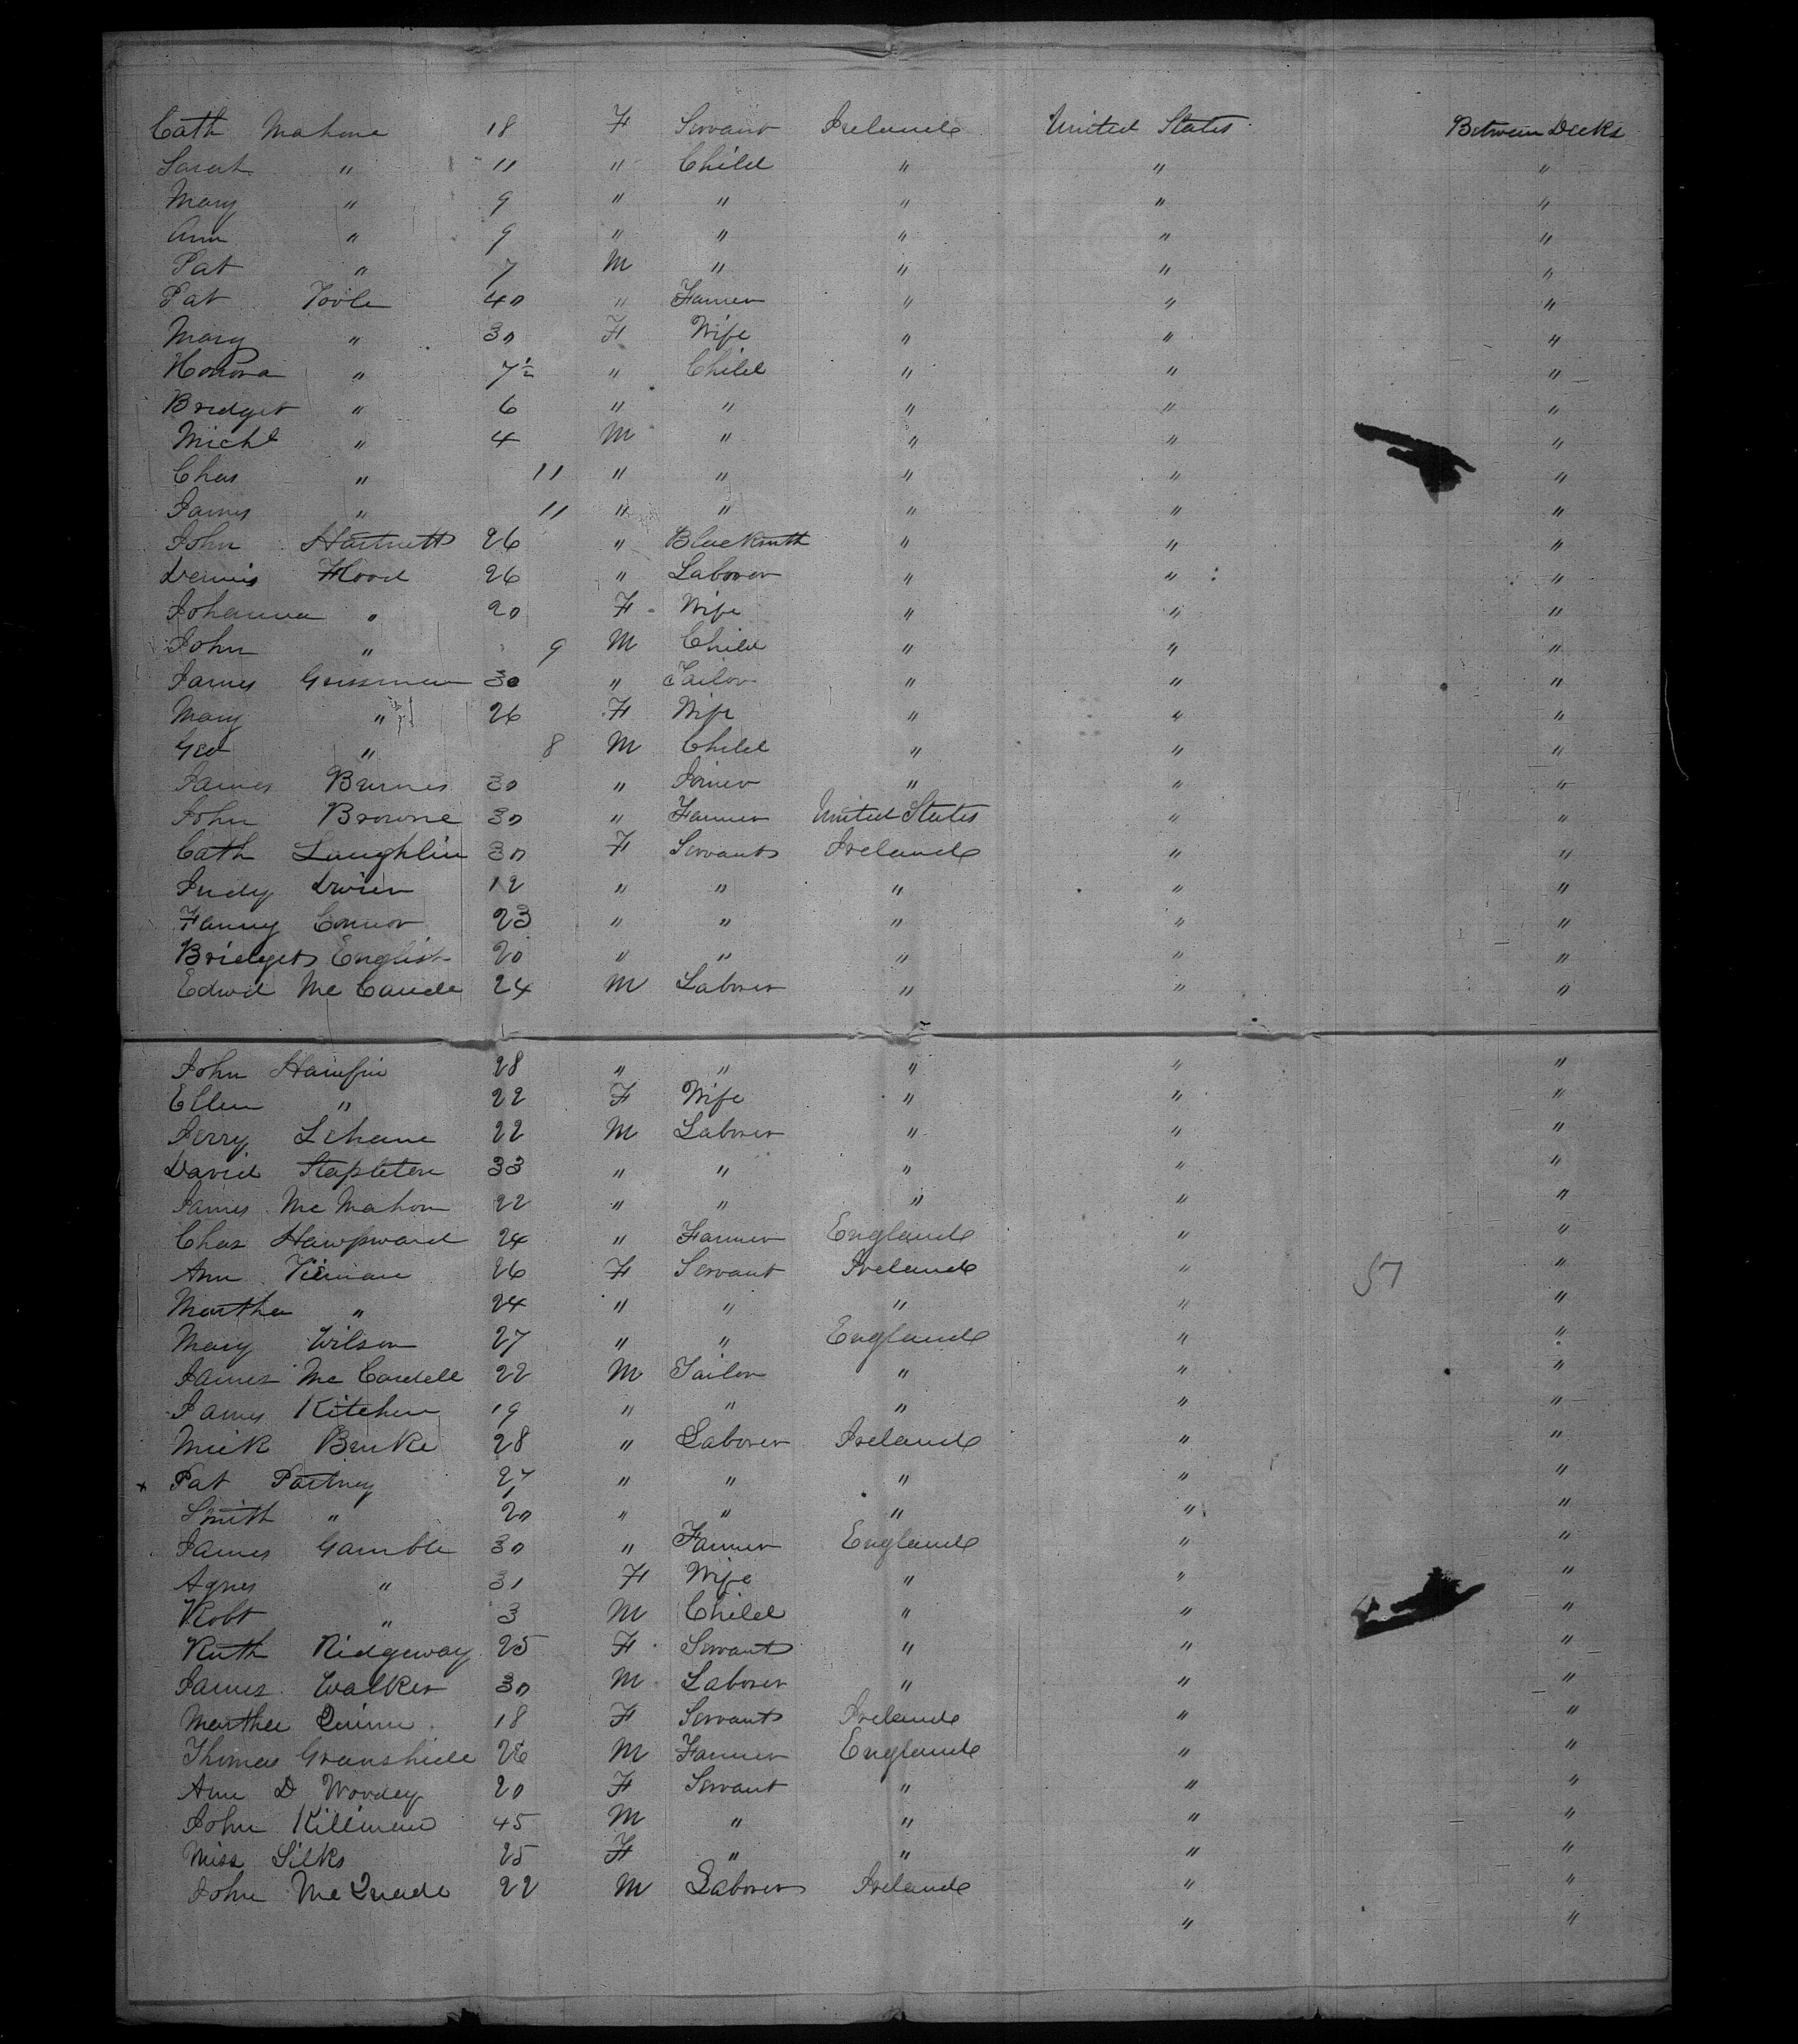 Cath Mahone 18 F Servant Ireland United States Between Decks
Sarah " 11 " Child " " "
Mary " 9 " " " " "
Ann " 9 " " " " "
Pat " 7 M " " " "
Pat Toole 40 " Farmer " " "
Mary " 30 F Wife " " "
Honora " 7½ " Child " " "
Bridget " 6 " " " " "
Michl " 4 M " " " "
Chas " 11 " " " " "
James " 11 " " " " "
John Hartnett 26 " Blacksmith " " "
Dennis Flood 26 " Laborer " " "
Johanna " 20 F Wife " " "
John " 9 M Child " " "
James 30 " Tailor " " "
Mary " 26 F Wife " " "
Geo " 8 M Child " " "
James Burnes 30 " Joiner " " "
John Browne 30 " Farmer United States " "
Cath Laughlin 30 F Servant Ireland " "
Judy Dwier 12 " " " " "
Fanny Connor 23 " " " " "
Bridget English 20 " " " " "
Edwd 24 M Laborer " " "
John 28 " " " " "
Ellen " 22 F Wife " " "
Jerry Lehane 22 M Laborer " " "
David Stapleton 33 " " " " "
James McMahon 22 " " " " "
Chas 24 " Farmer England " "
Ann Tiernan 26 F Servant Ireland " 57 "
Martha " 24 " " " " "
Mary Wilson 27 " " England " "
James McCardell 22 M Tailor " " "
James Kitchen 19 " " " " "
Mick Burke 28 " Laborer Ireland " "
x Pat Partney 27 " " " " "
Smith " 20 " " " " "
James Gamble 30 " Farmer England " "
Agnes " 31 F Wife " " "
Robt " 3 M Child " " "
Ruth Ridgeway 25 F Servant " " "
James Walker 30 M Laborer " " "
Martha Quinn 18 F Servant Ireland " "
Thomas 26 M Farmer England " "
Ann D Woodey 20 F Servant " " "
John 45 M " " " "
Miss Silks 25 F " " " "
John McQuade 22 M Laborer Ireland " "
" "